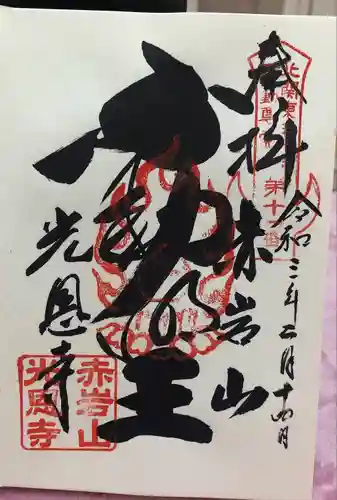 奉拝
令和三年二月十四日
赤岩山
不動明王
光恩寺
北関東
第十
赤岩山
光恩寺